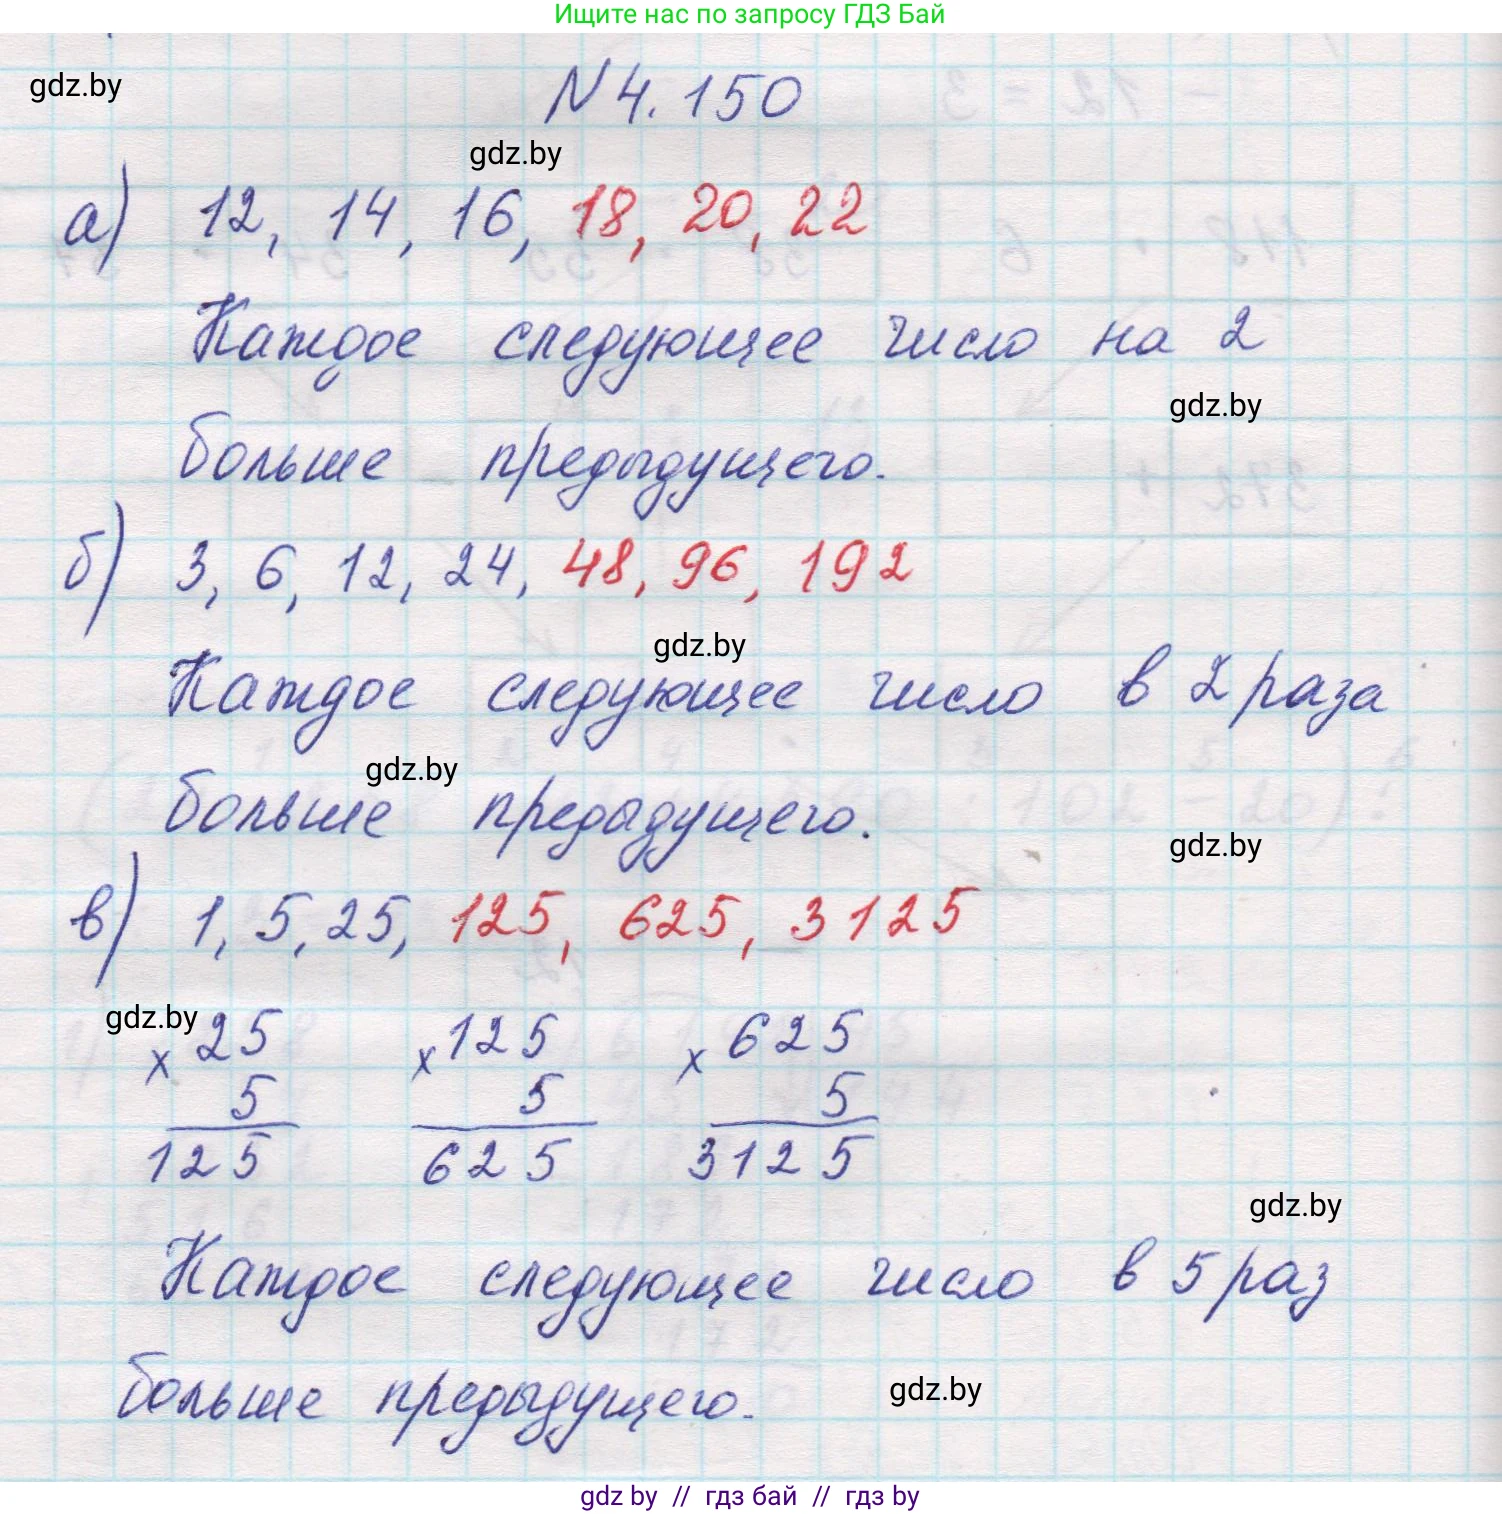 Ищите нас по запросу ГДЗ Бай
gdz.by
N 4.150
gdz.by
а) 12, 14, 16, 18, 20, 22
Каждое следующее число на 2
gdz.by
больше предыдущего.
б) 3, 6, 12, 24, 48, 96, 192
gdz.by
Каждое следующее число в 2 раза
gdz.by
больше предыдущего.
gdz.by
в) 1, 5, 25, 125, 625, 3125
gdz.by
× 25 × 125 × 625
5 5 5
125 625 3125
gdz.by
Каждое следующее число в 5 раз
gdz.by
больше предыдущего.
gdz by // гдз бай // гдз by